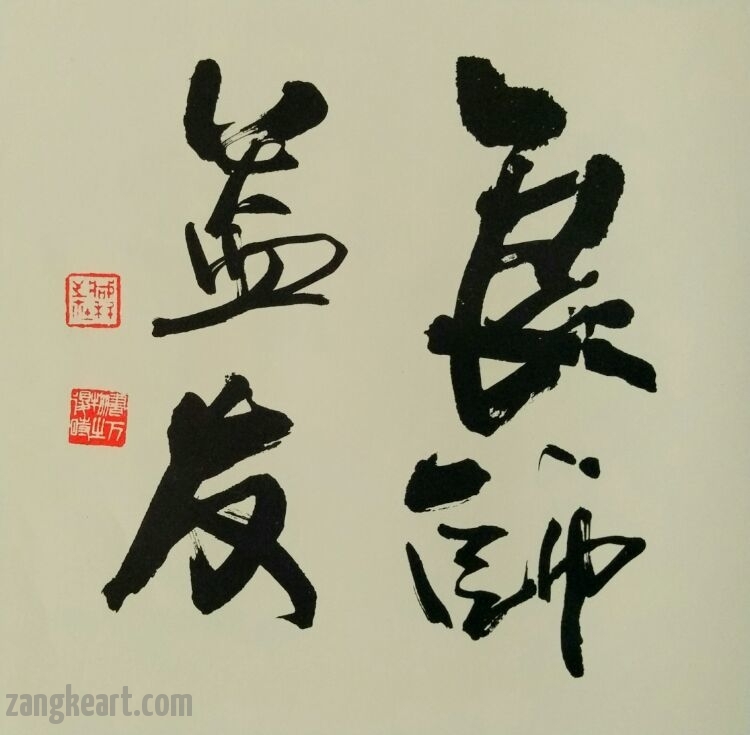 良師
益友
zangkeart.com